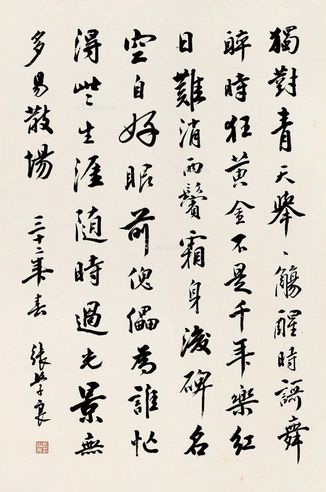 獨對青天舉一觴醒時謌舞
醉時狂黃金不是千年樂紅
日難消兩鬢霜身後碑名
空自好眼前傀儡為誰忙
得些生涯隨時過光景無
多易散場 三十二年春 張學良